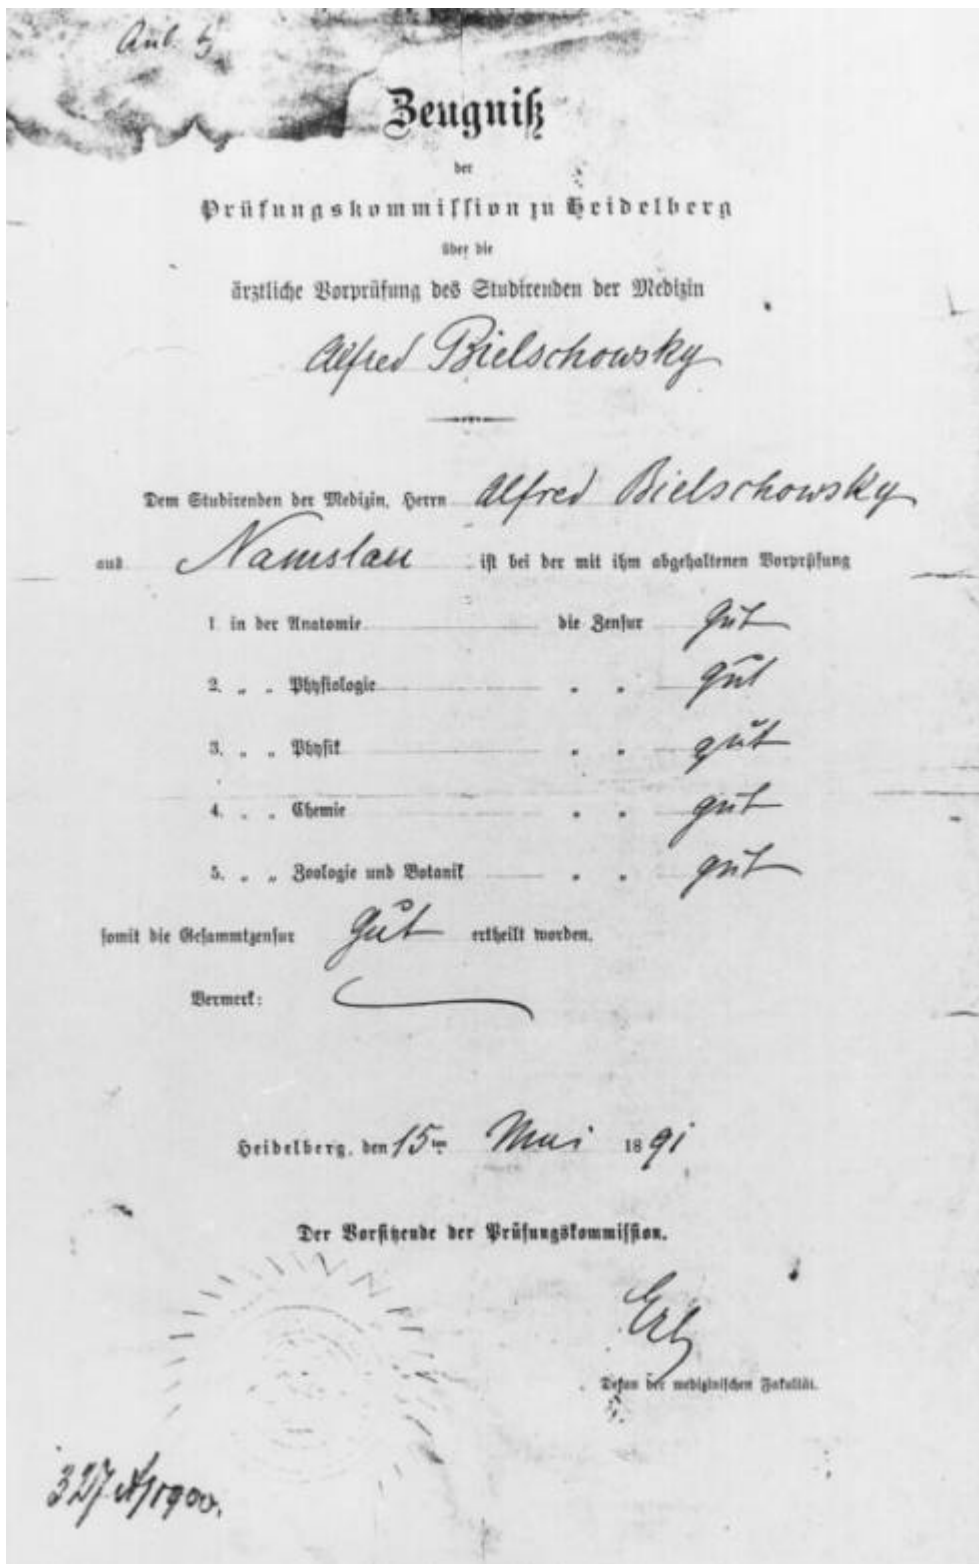 Zeugniß
der
Prüfungskommission zu Heidelberg
über die
ärztliche Vorprüfung des Studirenden der Medizin
Alfred Bielschowsky
Dem Studirenden der Medizin, Herrn Alfred Bielschowsky
aus Namslau ist bei der mit ihm abgehaltenen Vorprüfung
1. in der Anatomie die Zensur gut
2. „ „ Physiologie „ „ gut
3. „ „ Physik „ „ gut
4. „ „ Chemie „ „ gut
5. „ „ Zoologie und Botanik „ „ gut
somit die Gesammtzensur gut ertheilt worden.
Vermerk:
Heidelberg, den 15ten Mai 1891
Der Vorsitzende der Prüfungskommission.
Erb
Dekan der medizinischen Fakultät.